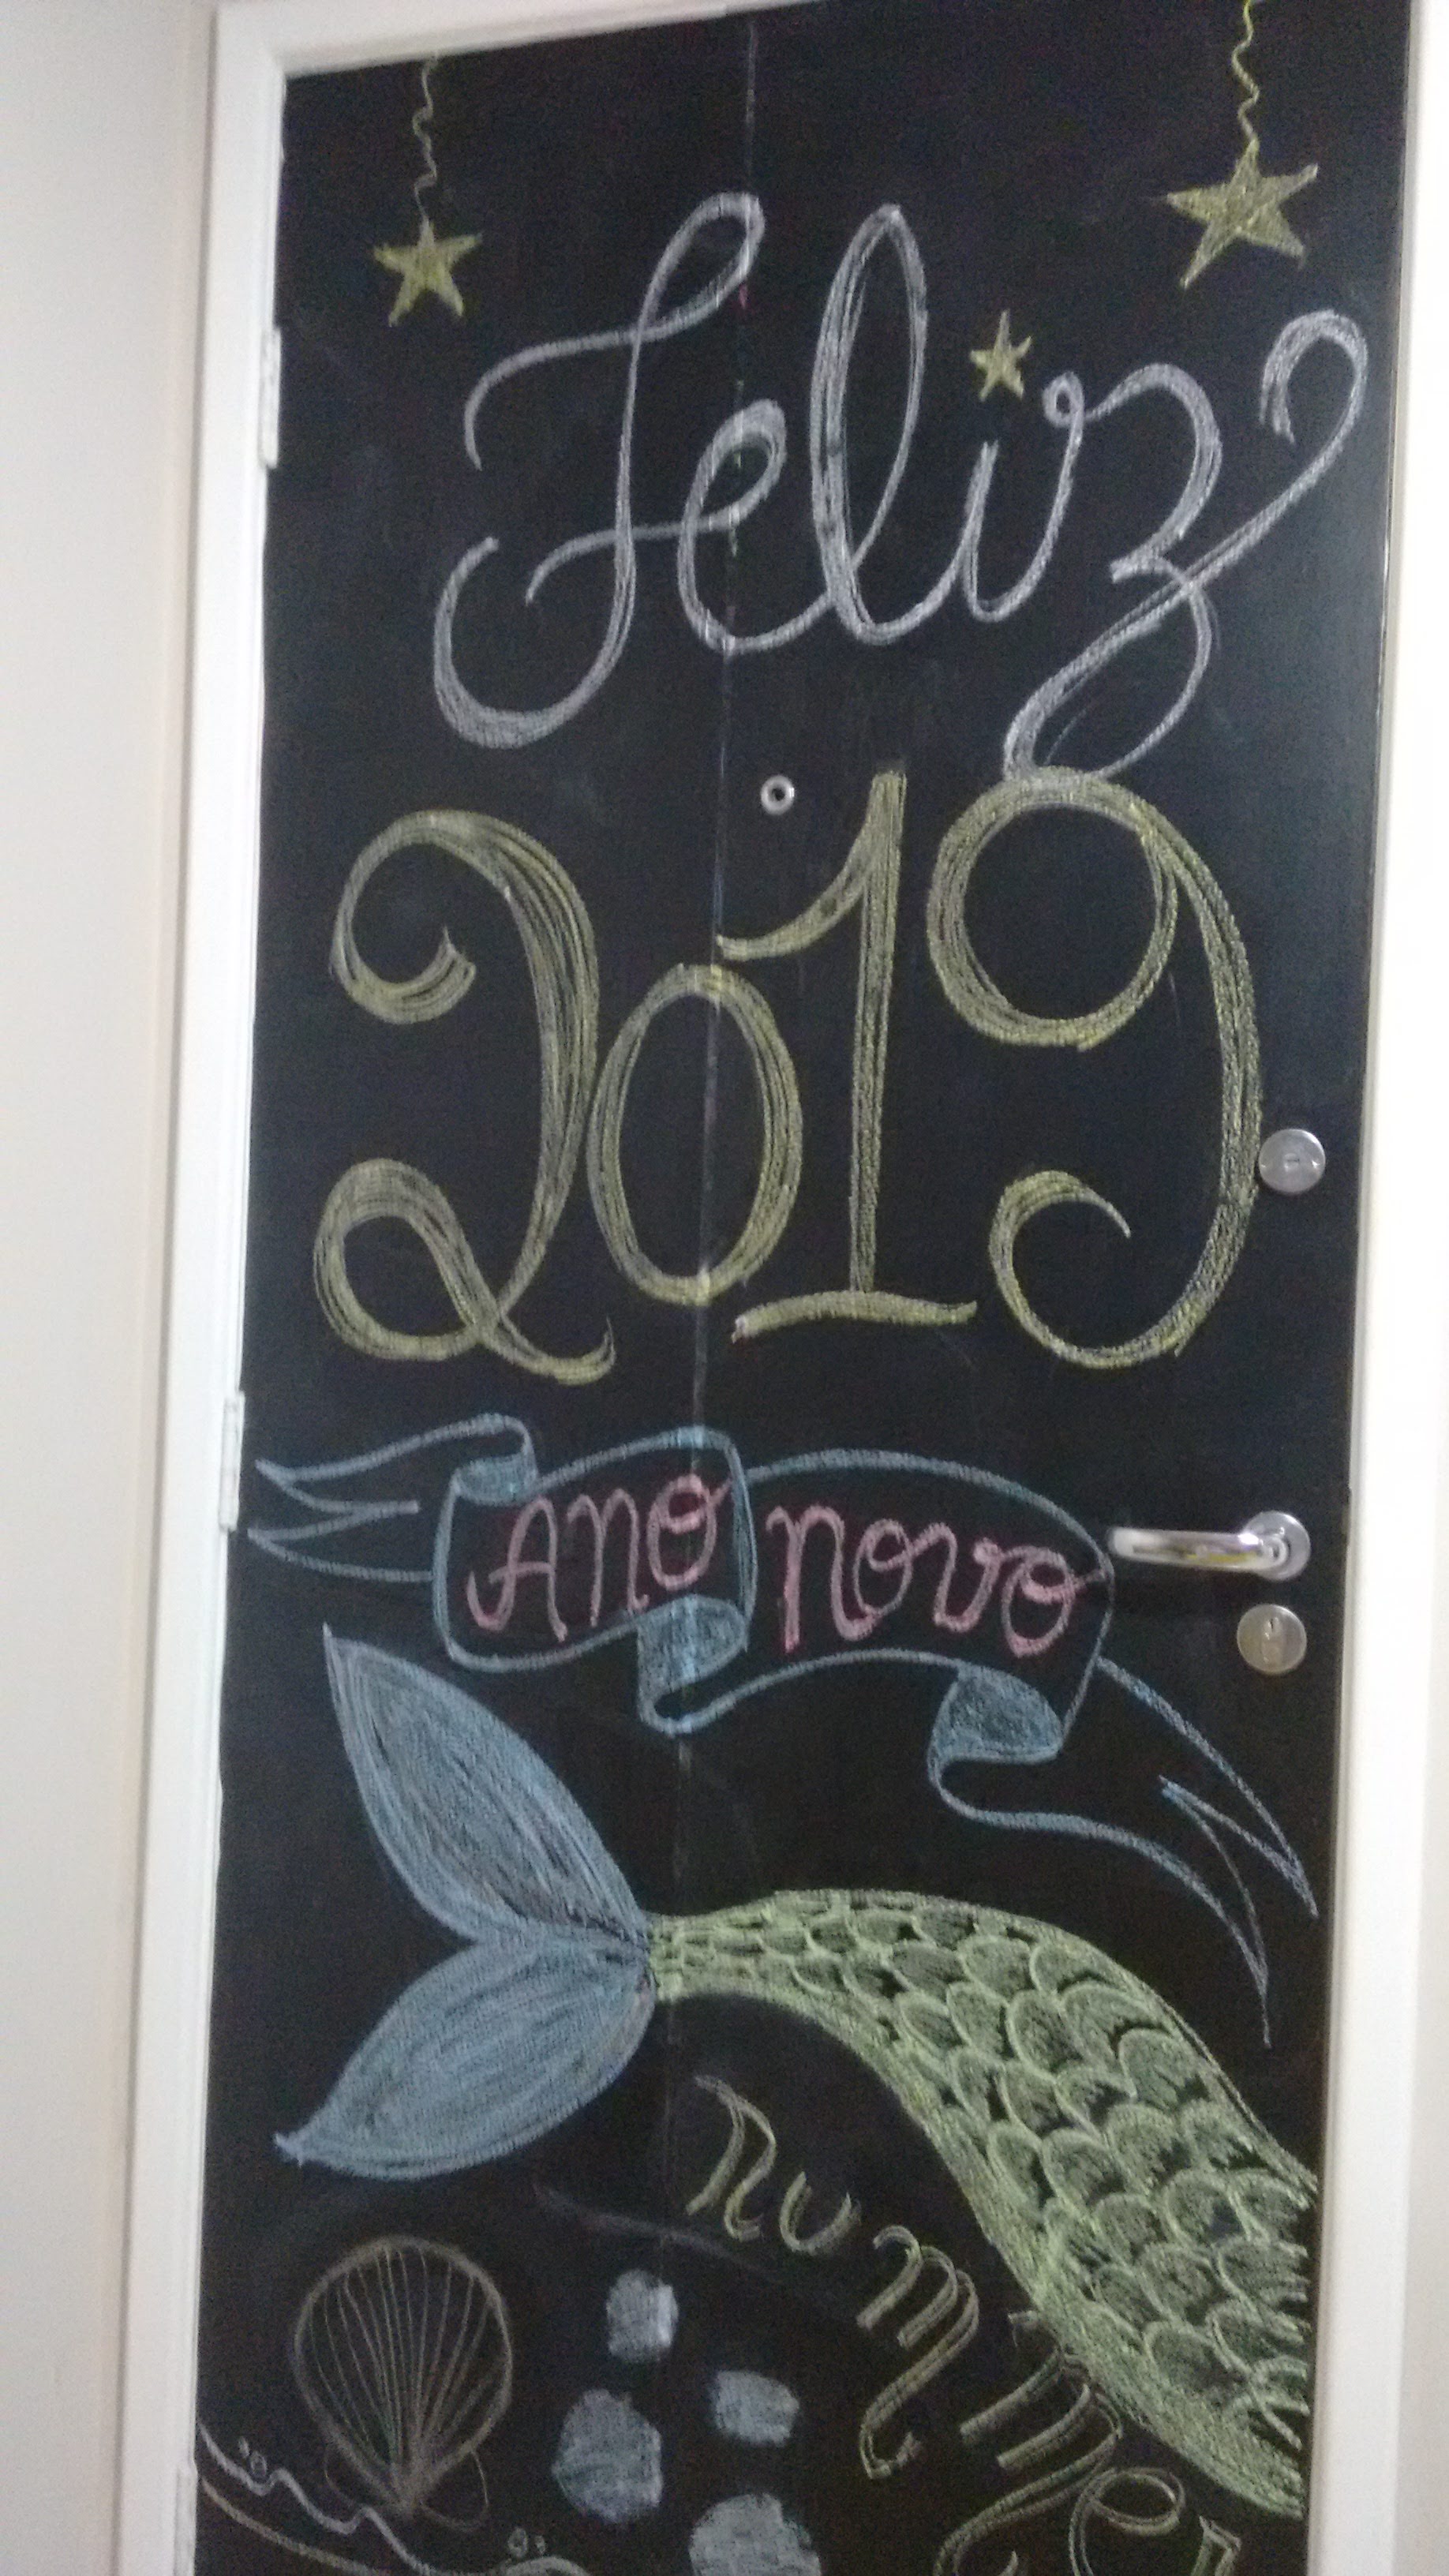 Feliz
2019
Ano novo
summer